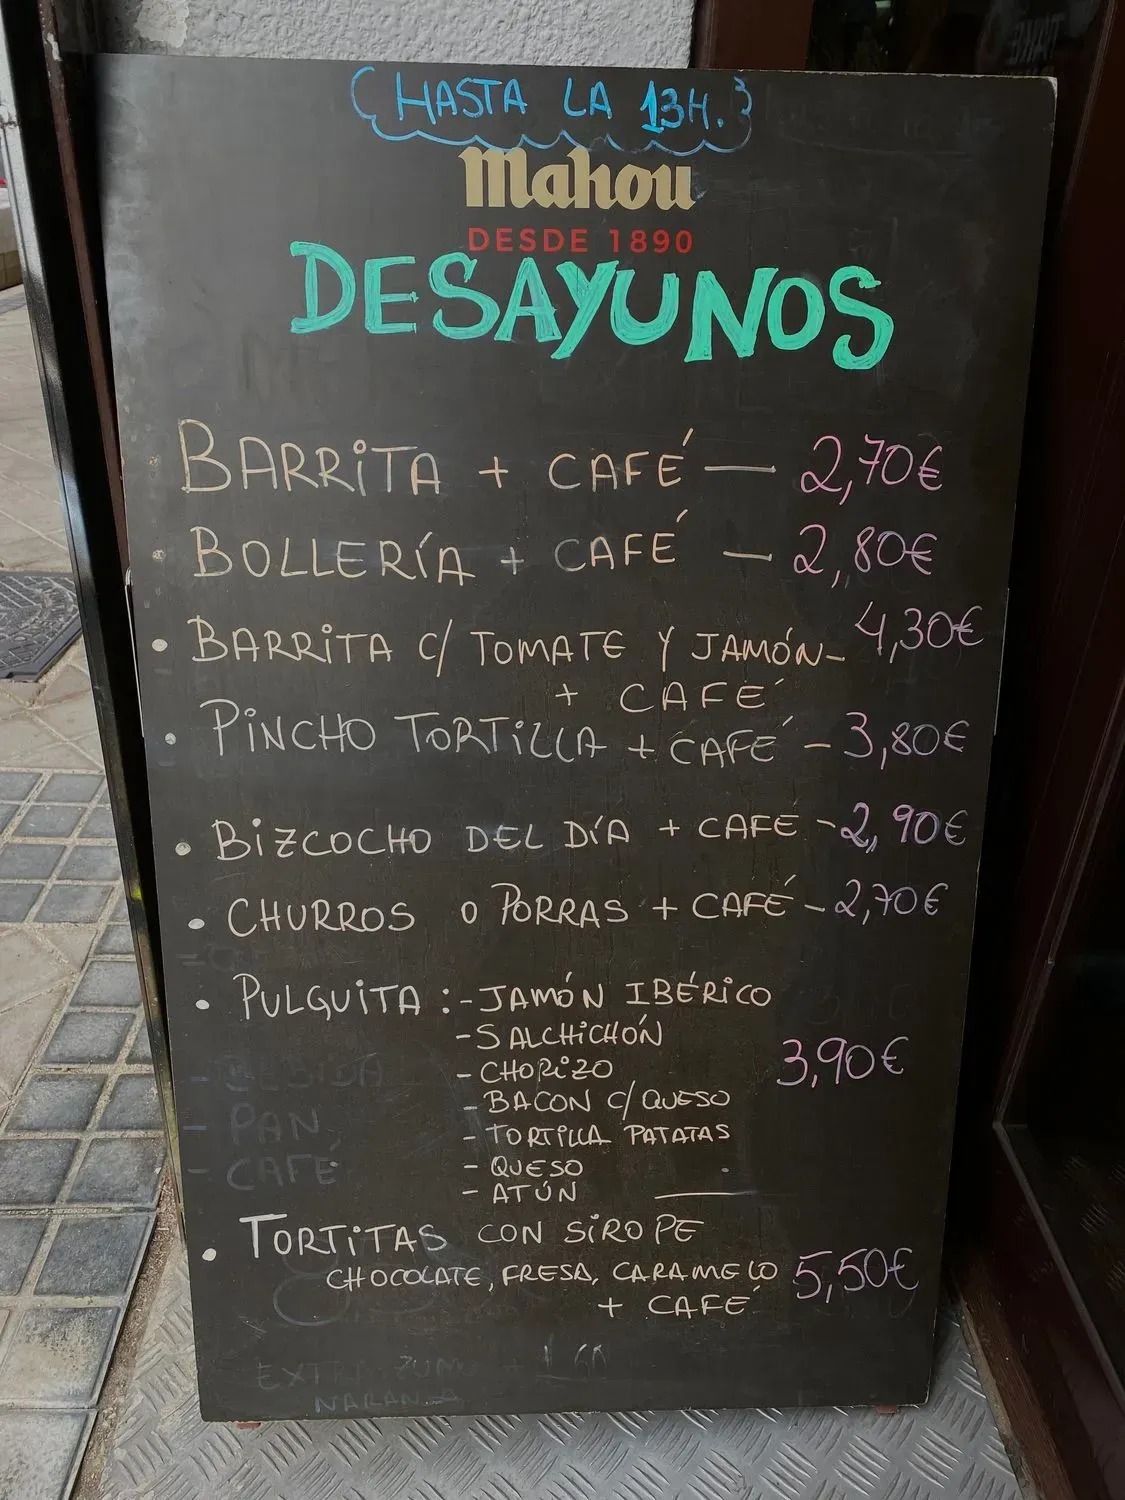 HASTA LA 13H.
Mahou
DESDE 1890
DESAYUNOS
BARRiTA + CAFÉ — 2,70€
BOLLERÍA + CAFÉ — 2,80€
• BARRiTA C/ TOMATE Y JAMÓN - 4,30€
+ CAFÉ
• PiNCHO TORTiLLA + CAFÉ - 3,80€
• BiZCOCHO DEL DÍA + CAFE - 2,90€
• CHURROS O PORRAS + CAFÉ - 2,70€
• PULGUiTA : - JAMÓN IBÉRiCO
- SALCHiCHÓN
- CHORiZO 3,90€
- BACON C/ QUESO
- TORTiLLA PATATAS
- QUESO
- ATÚN
• TORTiTAS CON SiROPE
CHOCOLATE, FRESA, CARAMELO 5,50€
+ CAFÉ
- BEBIDA
- PAN
- CAFÉ
EXTRA ZUMO
NARANJA